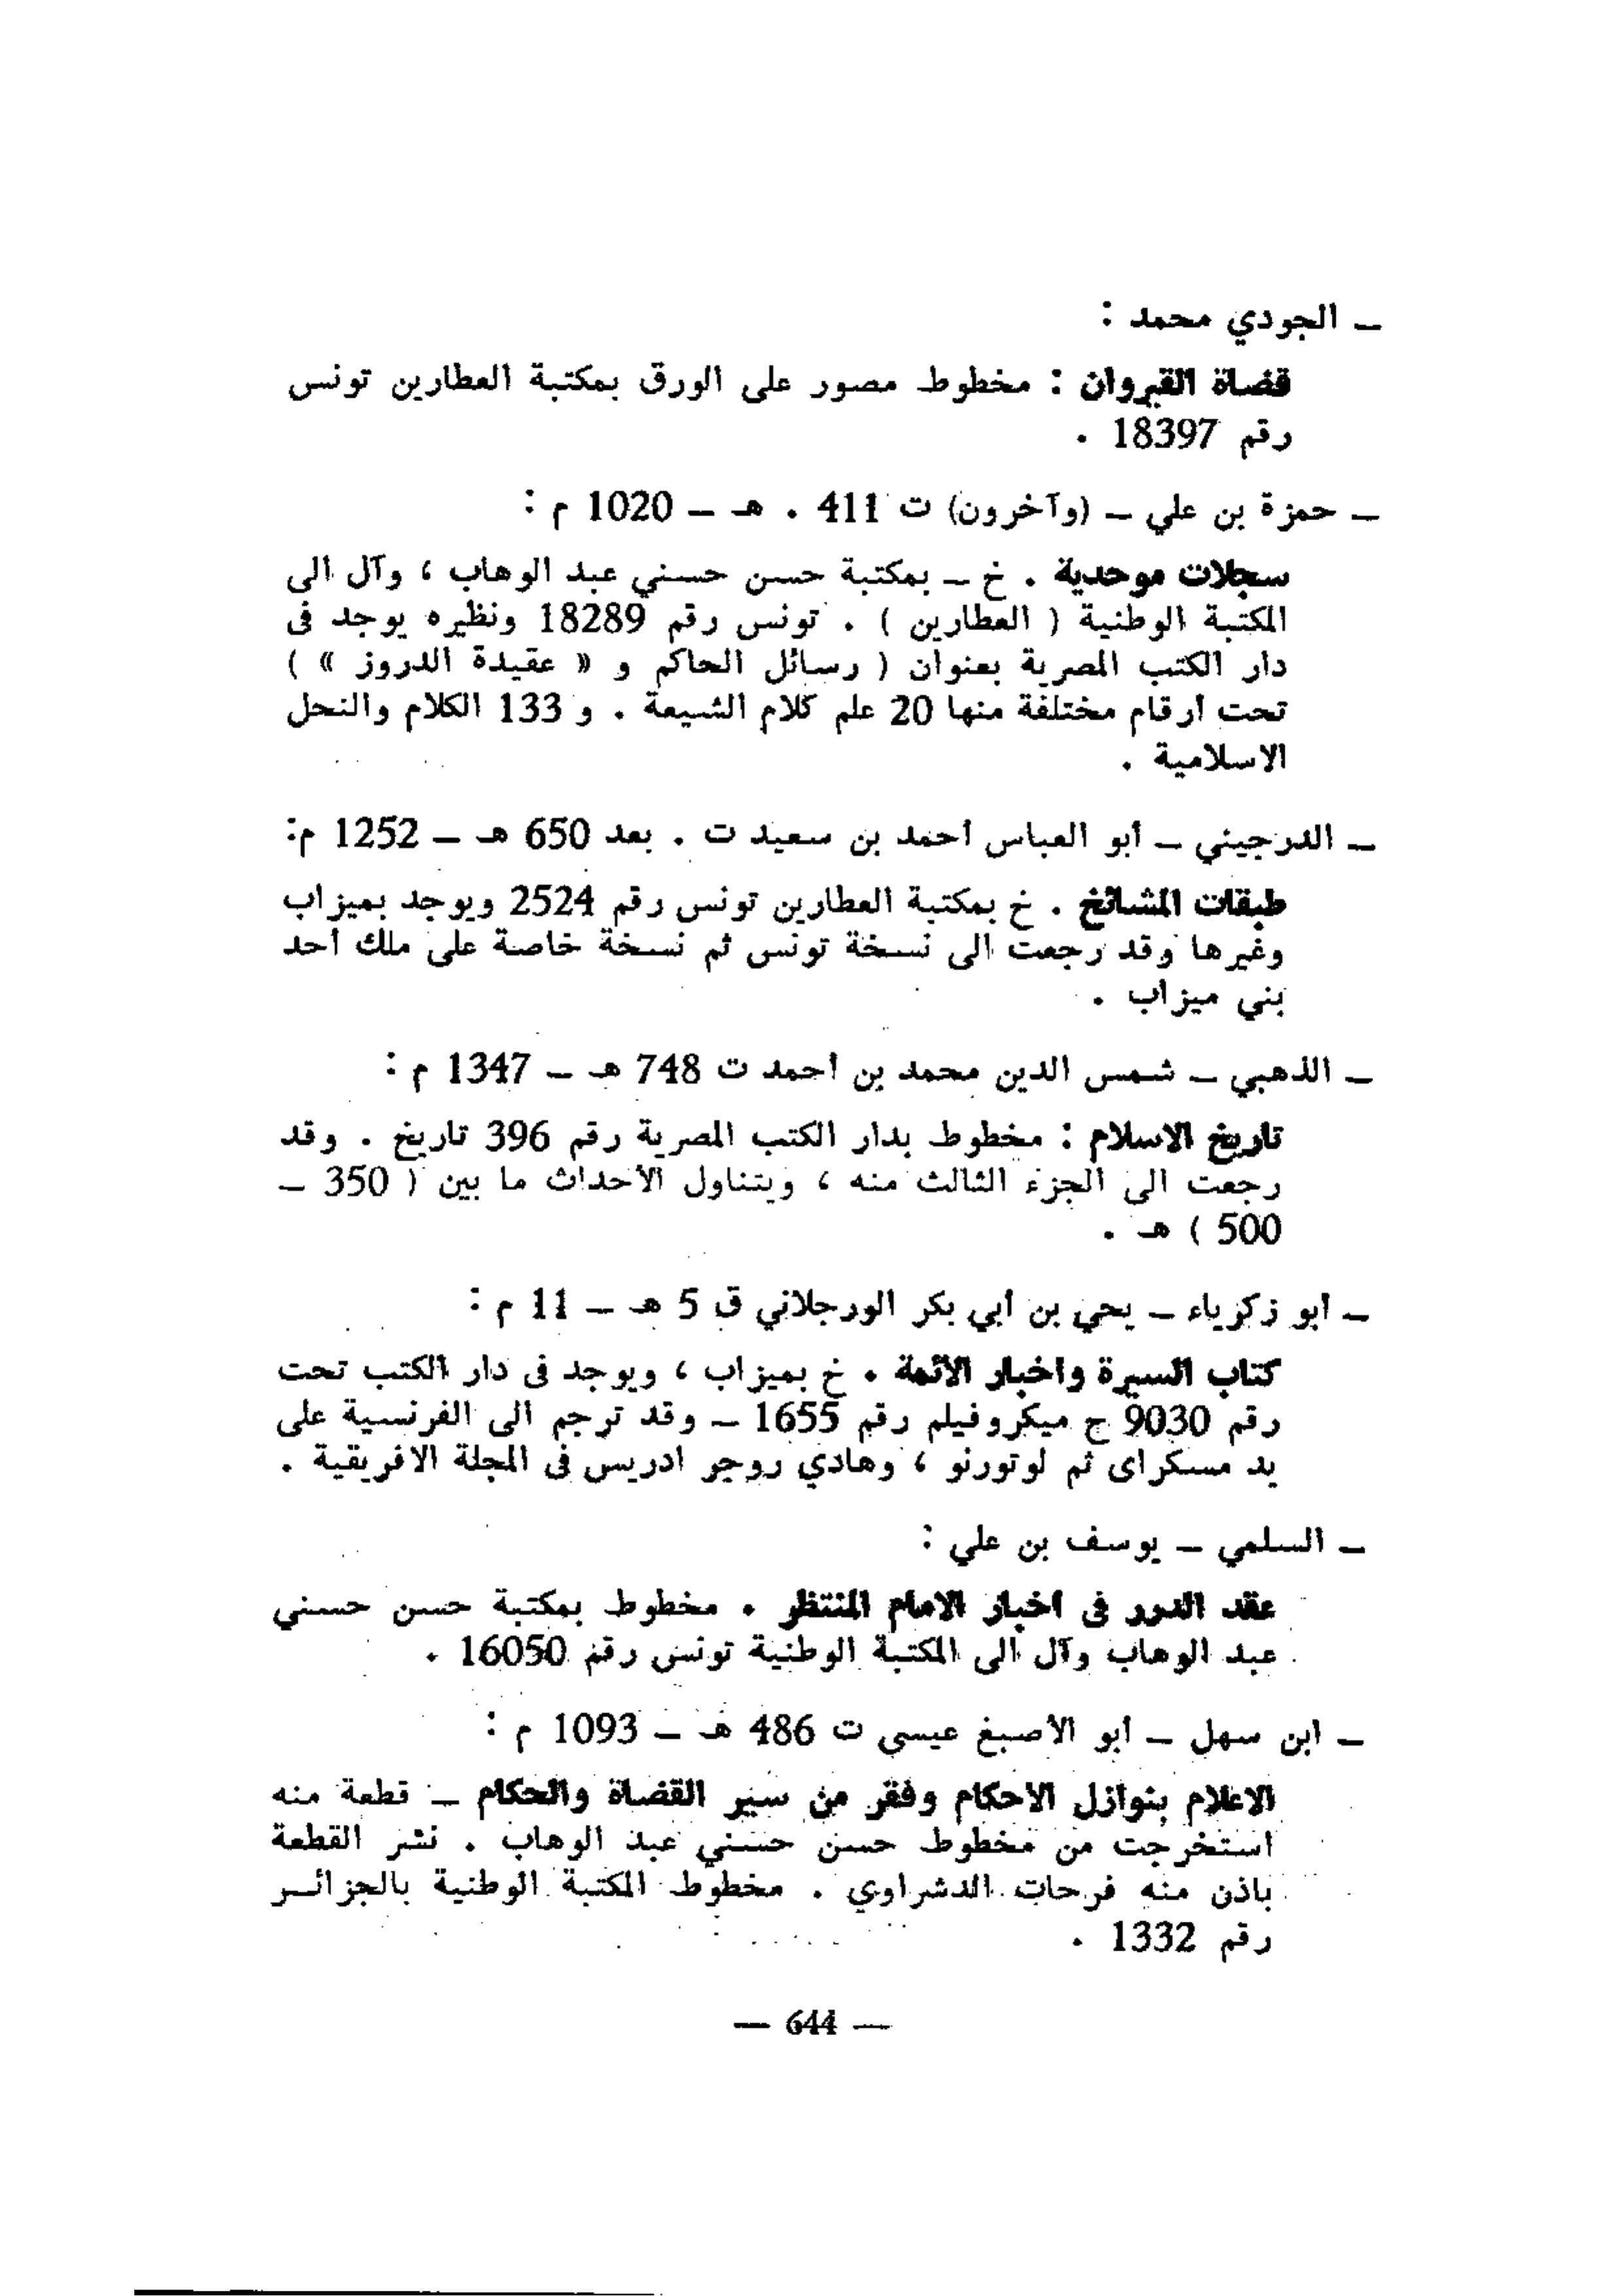 ـ الجودي محمد :
قضاة القيروان : مخطوط مصور على الورق بمكتبة العطارين تونس
رقم 18397 .
ـ حمزة بن علي ـ (وآخرون) ت 411 . هـ ـ 1020 م :
سجلات موحدية . خ ـ بمكتبة حسن حسني عبد الوهاب ، وآل الى
المكتبة الوطنية ( العطارين ) . تونس رقم 18289 ونظيره يوجد فى
دار الكتب المصرية بعنوان ( رسائل الحاكم و « عقيدة الدروز » )
تحت أرقام مختلفة منها 20 علم كلام الشيعة . و 133 الكلام والنحل
الاسلامية .
ـ الدرجيني ـ أبو العباس أحمد بن سعيد ت . بعد 650 هـ ـ 1252 م:
طبقات المشائخ . خ بمكتبة العطارين تونس رقم 2524 ويوجد بميزاب
وغيرها وقد رجعت الى نسخة تونس ثم نسخة خاصة على ملك أحد
بني ميزاب .
ـ الذهبي ـ شمس الدين محمد بن أحمد ت 748 هـ ـ 1347 م :
تاريخ الاسلام : مخطوط بدار الكتب المصرية رقم 396 تاريخ . وقد
رجعت الى الجزء الثالث منه ، ويتناول الأحداث ما بين ( 350 ـ
500 ) هـ .
ـ أبو زكرياء ـ يحي بن أبي بكر الورجلاني ق 5 هـ ـ 11 م :
كتاب السيرة واخبار الأئمة . خ بميزاب ، ويوجد فى دار الكتب تحت
رقم 9030 ح ميكروفيلم رقم 1655 ـ وقد ترجم الى الفرنسية على
يد مسكراى ثم لوتورنو ، وهادي روجر ادريس فى المجلة الافريقية .
ـ السلمي ـ يوسف بن علي :
عقد الدرر فى اخبار الامام المنتظر . مخطوط بمكتبة حسن حسني
عبد الوهاب وآل الى المكتبة الوطنية تونس رقم 16050 .
ـ ابن سهل ـ أبو الأصبغ عيسى ت 486 هـ ـ 1093 م :
الاعلام بنوازل الاحكام وفقر من سير القضاة والحكام ـ قطعة منه
استخرجت من مخطوط حسن حسني عبد الوهاب . نشر القطعة
باذن منه فرحات الدشراوي . مخطوط المكتبة الوطنية بالجزائــر
رقم 1332 .
— 644 —